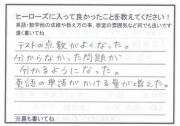 ヒーローズに入って良かったことを教えてください！
英語・数学他の成績ややえ方の事、教室の雰囲気など何でも良いです
濃く書いてね
テストの点数がよくなった。
分からなかった問題が
分かるようになった。
英語の単語がかける量が増えた。
※裏も書いてね